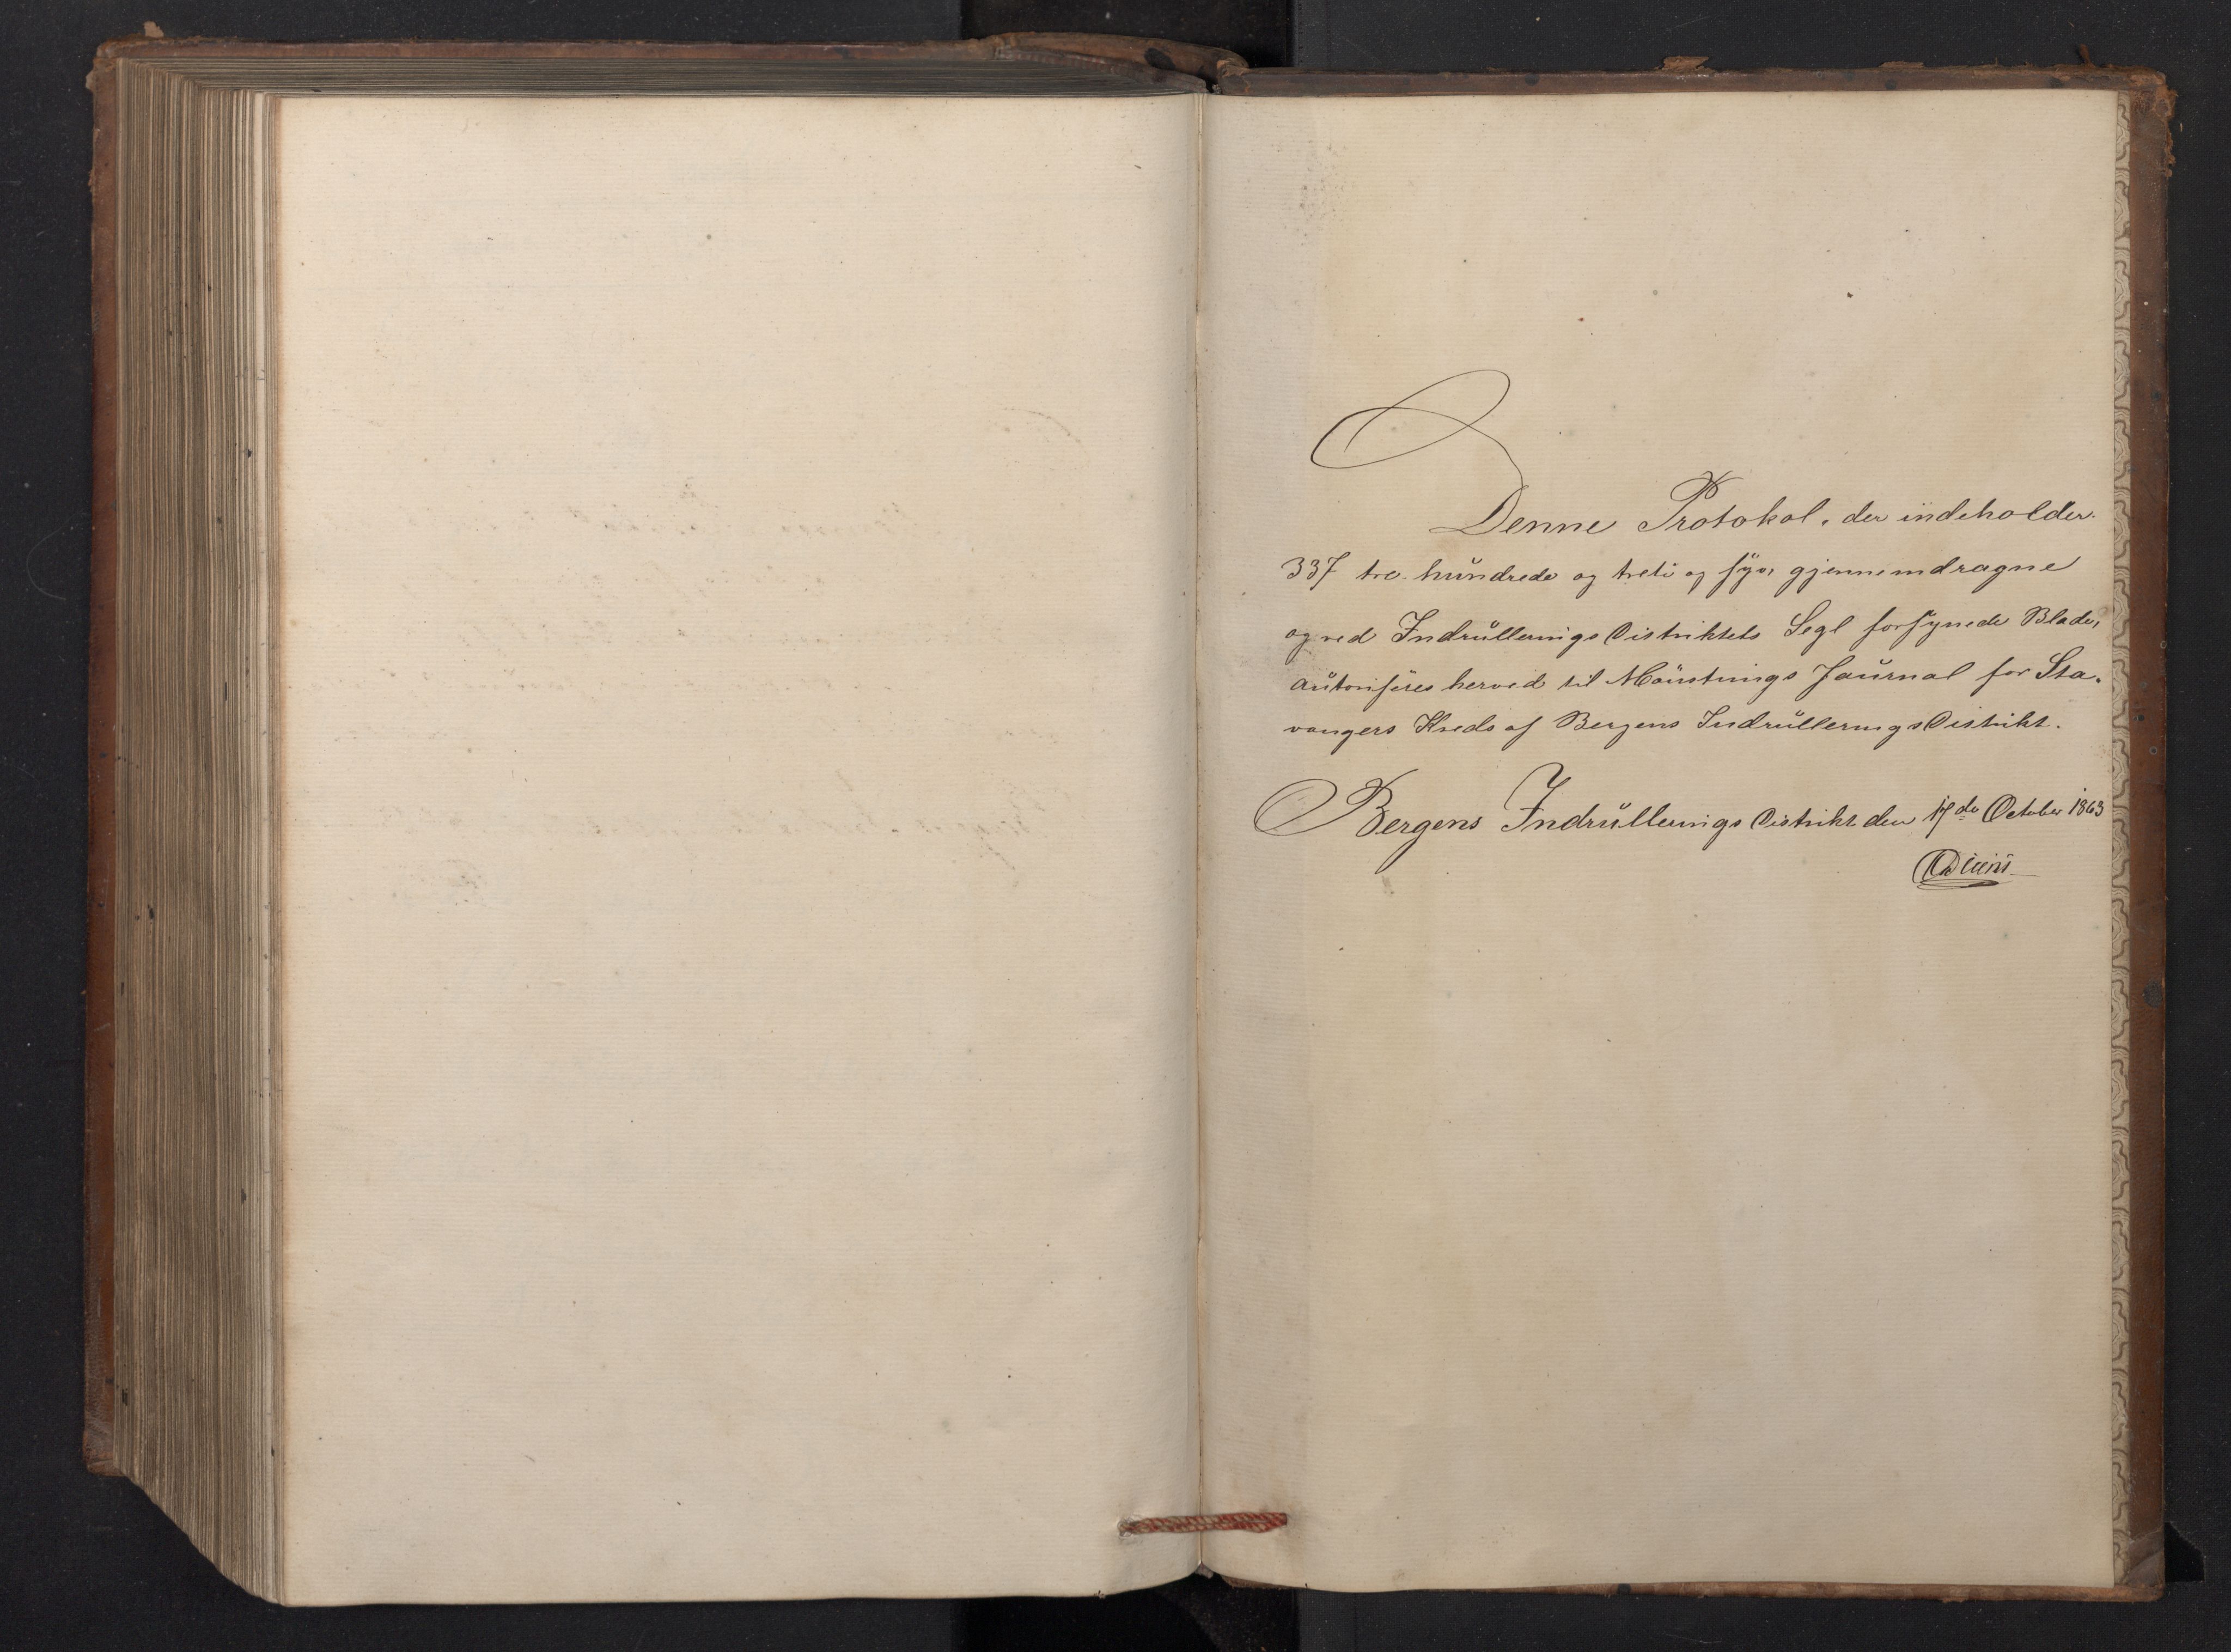 Denne Protokol, der indeholder
337 tre hundrede og treti og syv, gjennemdragne
og ved Indrulleringsdistriktets Segl forsynede Blade,
autoriseres herved til Mønstrings Journal for Sta-
vangers Kreds af Bergens Indrulleringsdistrikt.
Bergens Indrulleringsdistrikt den 17de October 1863